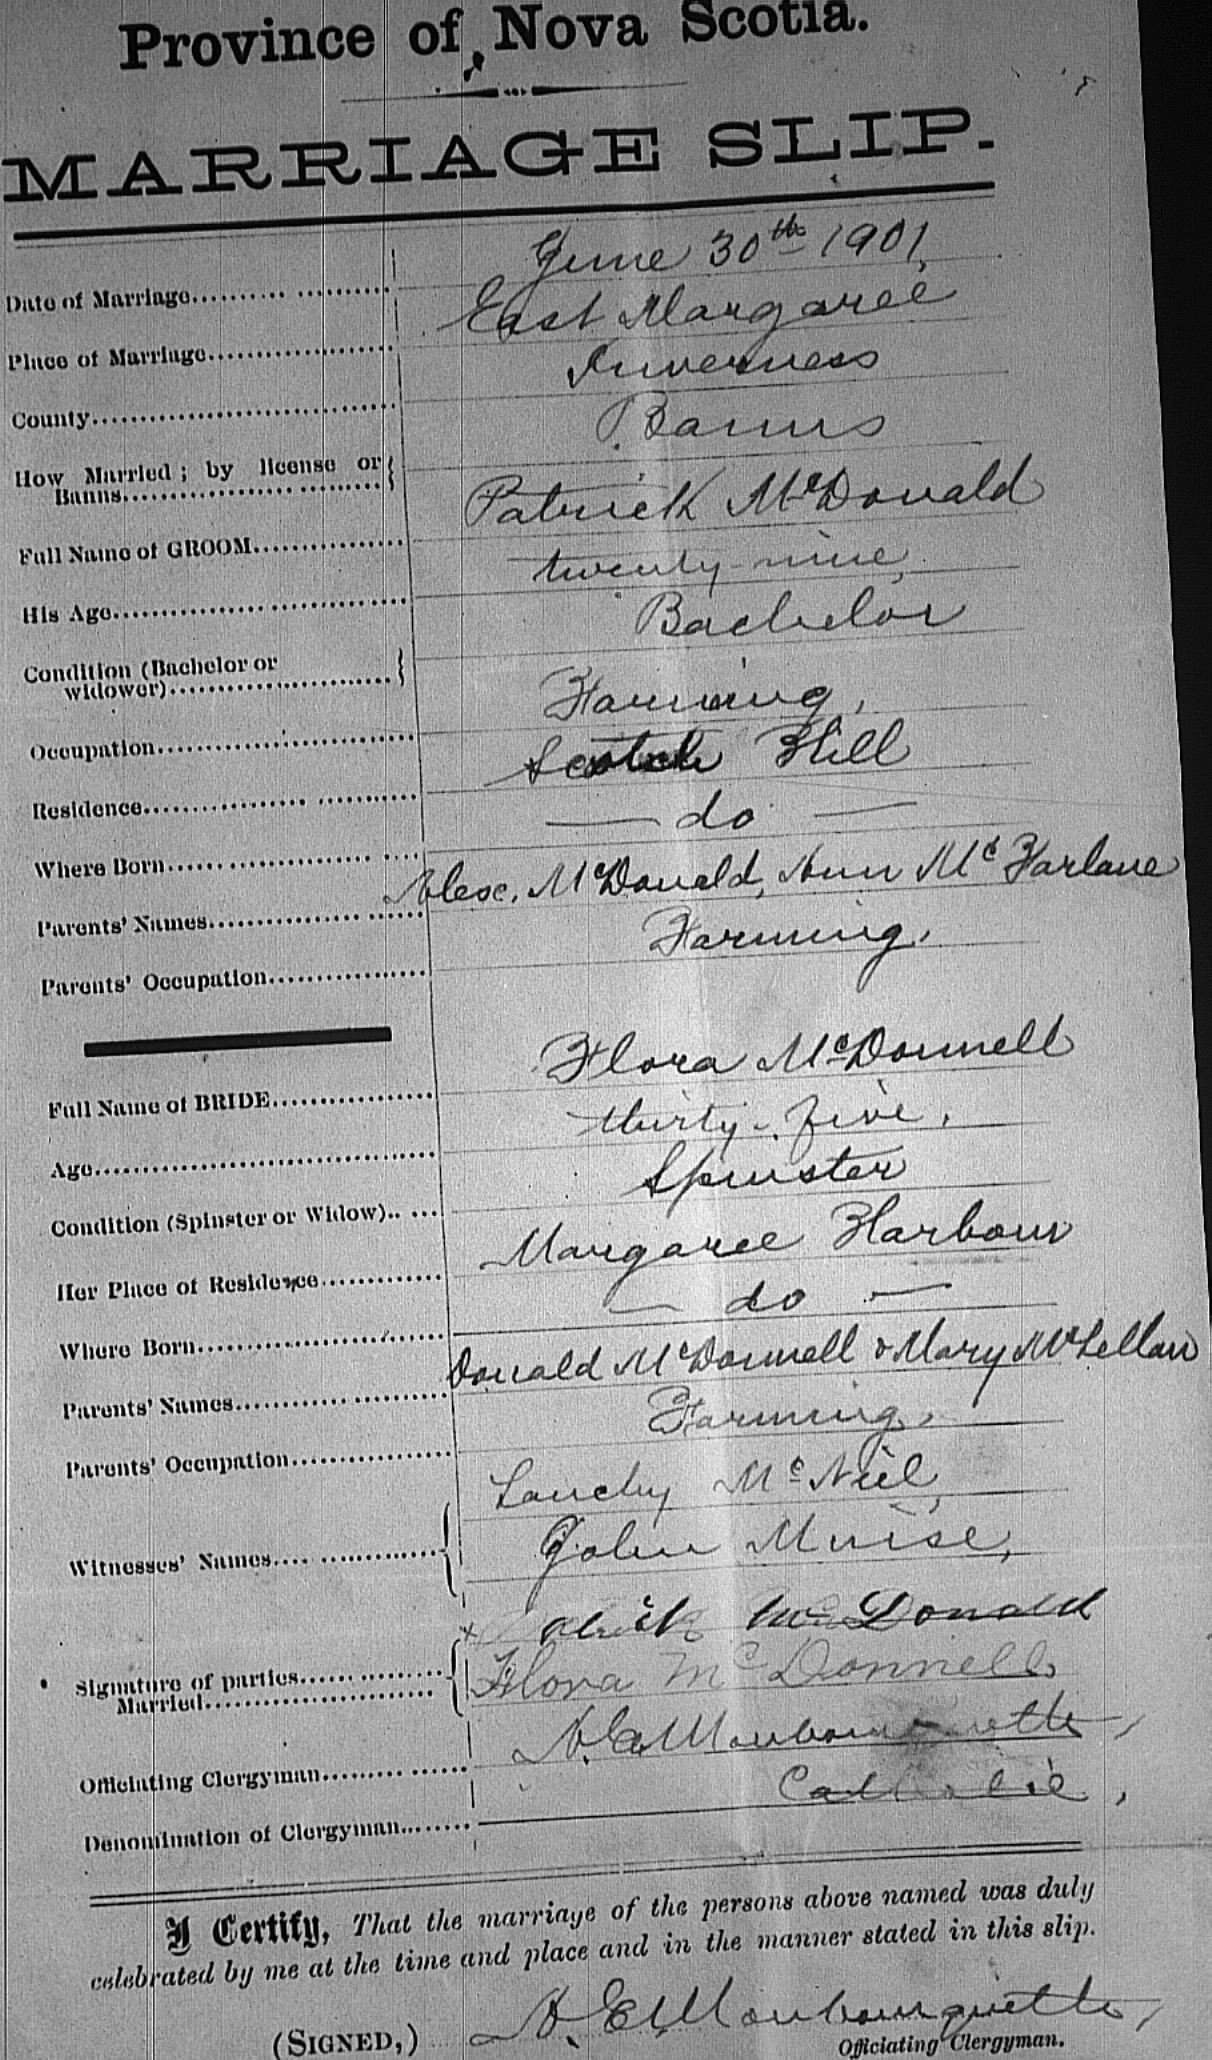 Province of Nova Scotia.
MARRIAGE SLIP.
Date of Marriage.......... .......... June 30th 1901,
Place of Marriage.................... East Margaree
County.............................. Inverness
How Married ; by license or
Banns.................... Banns
Full Name of GROOM................ Patrick McDonald
His Age.............................. twenty-nine,
Condition (Bachelor or
widower)...................... Bachelor
Occupation.......................... Farming,
Residence................ .......... Scotch Hill
Where Born.................... .... — do —
Parents' Names................ ...... Alex. McDonald, Ann McFarlane
Parents' Occupation................ Farming,
Full Name of BRIDE................ Flora McDonnell
Age.................................. thirty-five,
Condition (Spinster or Widow).. ... Spinster
Her Place of Residence............. Margaree Harbour
Where Born........................ — do —
Parents' Names............ .......... Donald McDonnell & Mary McLellan
Parents' Occupation................ Farming,
Lauchy McNeil,
Witnesses' Names.... ............ John Muise,
x McDonald
Signature of parties................
Married........................ Flora McDonnell
Officiating Clergyman......... ...... A. E. Mombourquette,
Denomination of Clergyman........ Catholic,
I Certify, That the marriage of the persons above named was duly
celebrated by me at the time and place and in the manner stated in this slip.
(SIGNED,) A. E. Mombourquette,
Officiating Clergyman.